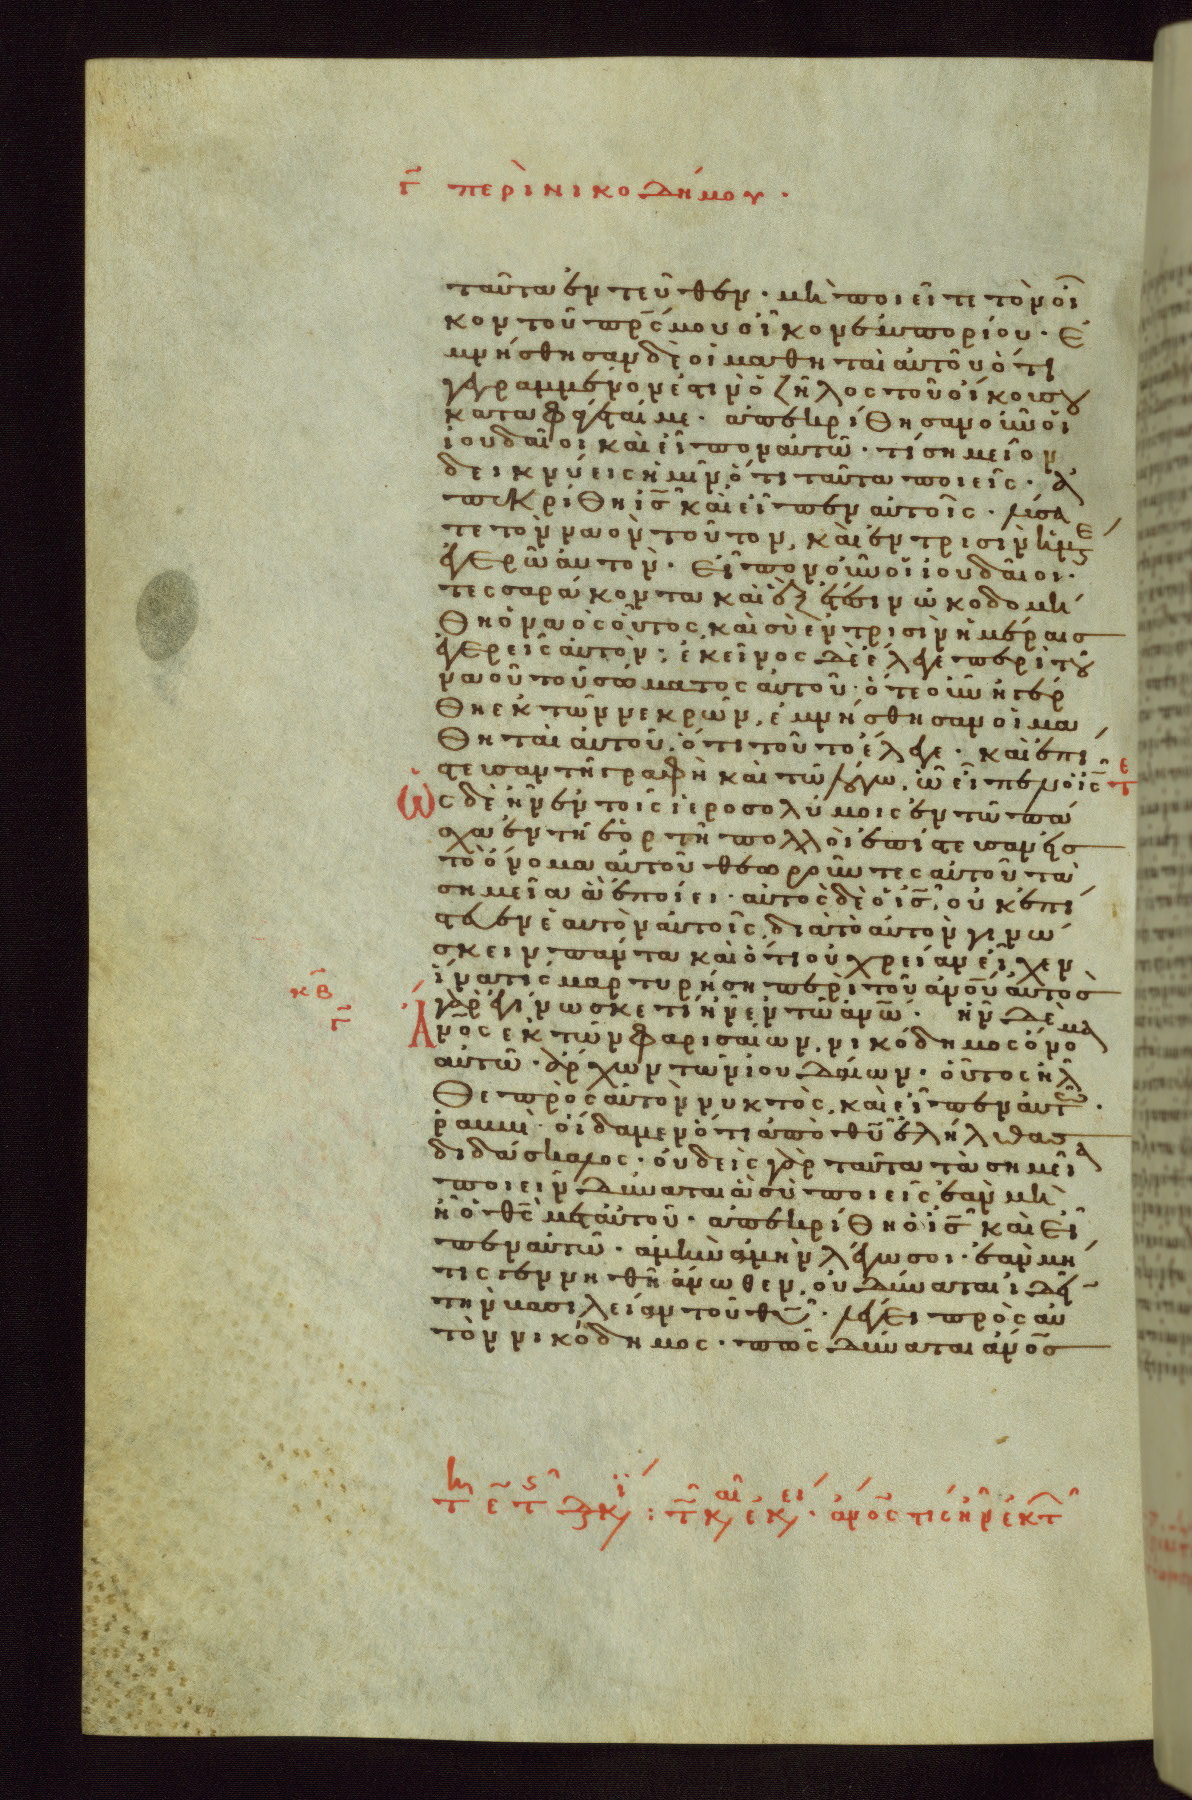 γ̄ περὶ νικοδήμου ·
ταῦτα ἐντεῦθεν · μὴ ποιεῖτε τὸν οἶ
κον τοῦ πρ̅ς μου οἶκον ἐμπορίου · Ἐ
μνήσθησαν δὲ οἱ μαθηταὶ αὐτοῦ ὅτι
γεγραμμένον ἐστὶν ὁ ζῆλος τοῦ οἴκου σου
καταφάγεταί με · ἀπεκρίθησαν οὖν οἱ
ἰουδαῖοι καὶ εἶπον αὐτῶ · τί σημεῖον
δεικνύεις ἡμῖν ὅτι ταῦτα ποιεῖς · ἀ
πεκρίθη ι̅ς̅ καὶ εἶπεν αὐτοῖς · λύσα
τε τὸν ναὸν τοῦτον, καὶ ἐν τρισὶν ἡμέ
ἐγερῶ αὐτόν · Εἶπον οὖν οἱ ἰουδαῖοι ·
τεσσαράκοντα καὶ ἓξ ἔτεσιν ὠκοδομή
θη ὁ ναὸς οὗτος, καὶ σὺ ἐν τρισὶν ἡμέραις
ἐγερεῖς αὐτόν; ἐκεῖνος δὲ ἔλεγε περὶ τοῦ
ναοῦ τοῦ σώματος αὐτοῦ · ὅτε οὖν ἠγέρ
θη ἐκ τῶν νεκρῶν, ἐμνήσθησαν οἱ μα
θηταὶ αὐτοῦ, ὅτι τοῦτο ἔλεγε · καὶ ἐπί
στευσαν τῆ γραφῆ καὶ τῶ λόγω, ὧ εἶπεν ὁ ι̅ς̅
Ὡς δὲ ἦν ἐν τοῖς ἱεροσολύμοις ἐν τῶ πά
σχα ἐν τῆ ἑορτῆ πολλοὶ ἐπίστευσαν εἰς
τὸ ὄνομα αὐτοῦ θεωροῦντες αὐτοῦ τὰ
σημεῖα ἃ ἐποίει · αὐτὸς δὲ ὁ ι̅ς̅, οὐκ ἐπί
στευεν ἑαυτὸν αὐτοῖς, διὰ τὸ αὐτὸν γινώ
σκειν πάντα καὶ ὅτι οὐ χρείαν εἶχεν
ἵνα τις μαρτυρήση περὶ τοῦ ἀν̅ο̅υ̅ αὐτὸς
κ̅β̅
γ̄
γὰρ ἐγίνωσκε τί ἦν ἐν τῶ ἀν̅ω̅ · ἦν δὲ
Ἄν̅ο̅ς ἐκ τῶν φαρισαίων, νικόδημος ὄνομα
αὐτῶ · ἄρχων τῶν ἰουδαίων · οὗτος ἦλ
θε πρὸς αὐτὸν νυκτός, καὶ εἶπεν αὐτῶ ·
ῥαββί · οἴδαμεν ὅτι ἀπὸ θ̅υ̅ ἐλήλυθας
διδάσκαλος · οὐδεὶς γὰρ ταῦτα τὰ σημεῖα
ποιεῖν δύναται ἃ σὺ ποιεῖς ἐὰν μὴ
ἦ ὁ θ̅ς̅ μετ αὐτοῦ · ἀπεκρίθη ὁ ι̅ς̅ καὶ εἶ
πεν αὐτῶ · ἀμὴν ἀμὴν λέγω σοι · ἐὰν μή
τις γεννηθῆ ἄνωθεν, οὐ δύναται ἰδεῖν
τὴν βασιλείαν τοῦ θ̅υ̅ · λέγει πρὸς αὐ
τὸν νικόδημος · πῶς δύναται ἀν̅ο̅ς
ἀν̅ο̅ς τις ἦν ἐκ τ